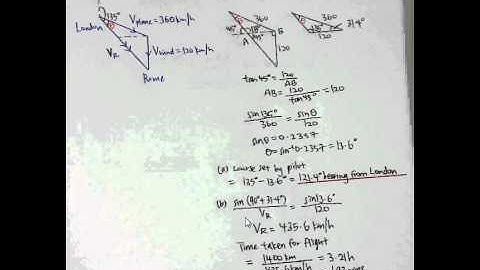 135°
V plane = 360 km/h
London
θ
V_R
V wind = 120 km/h
Rome
360
45°
A
B
45°
120
360
135°
120
31.4°
tan 45° = 120/AB
AB = 120/tan 45° = 120
sin 135°/360 = sin θ/120
sin θ = 0.2357
θ = sin⁻¹ 0.2357 = 13.6°
(a) Course set by pilot
= 135° - 13.6° = 121.4° bearing from London
(b) sin (90° + 31.4°)/V_R = sin 13.6°/120
V_R = 435.6 km/h
Time taken for flight
= 1400 km/435.6 km/h = 3.21 h